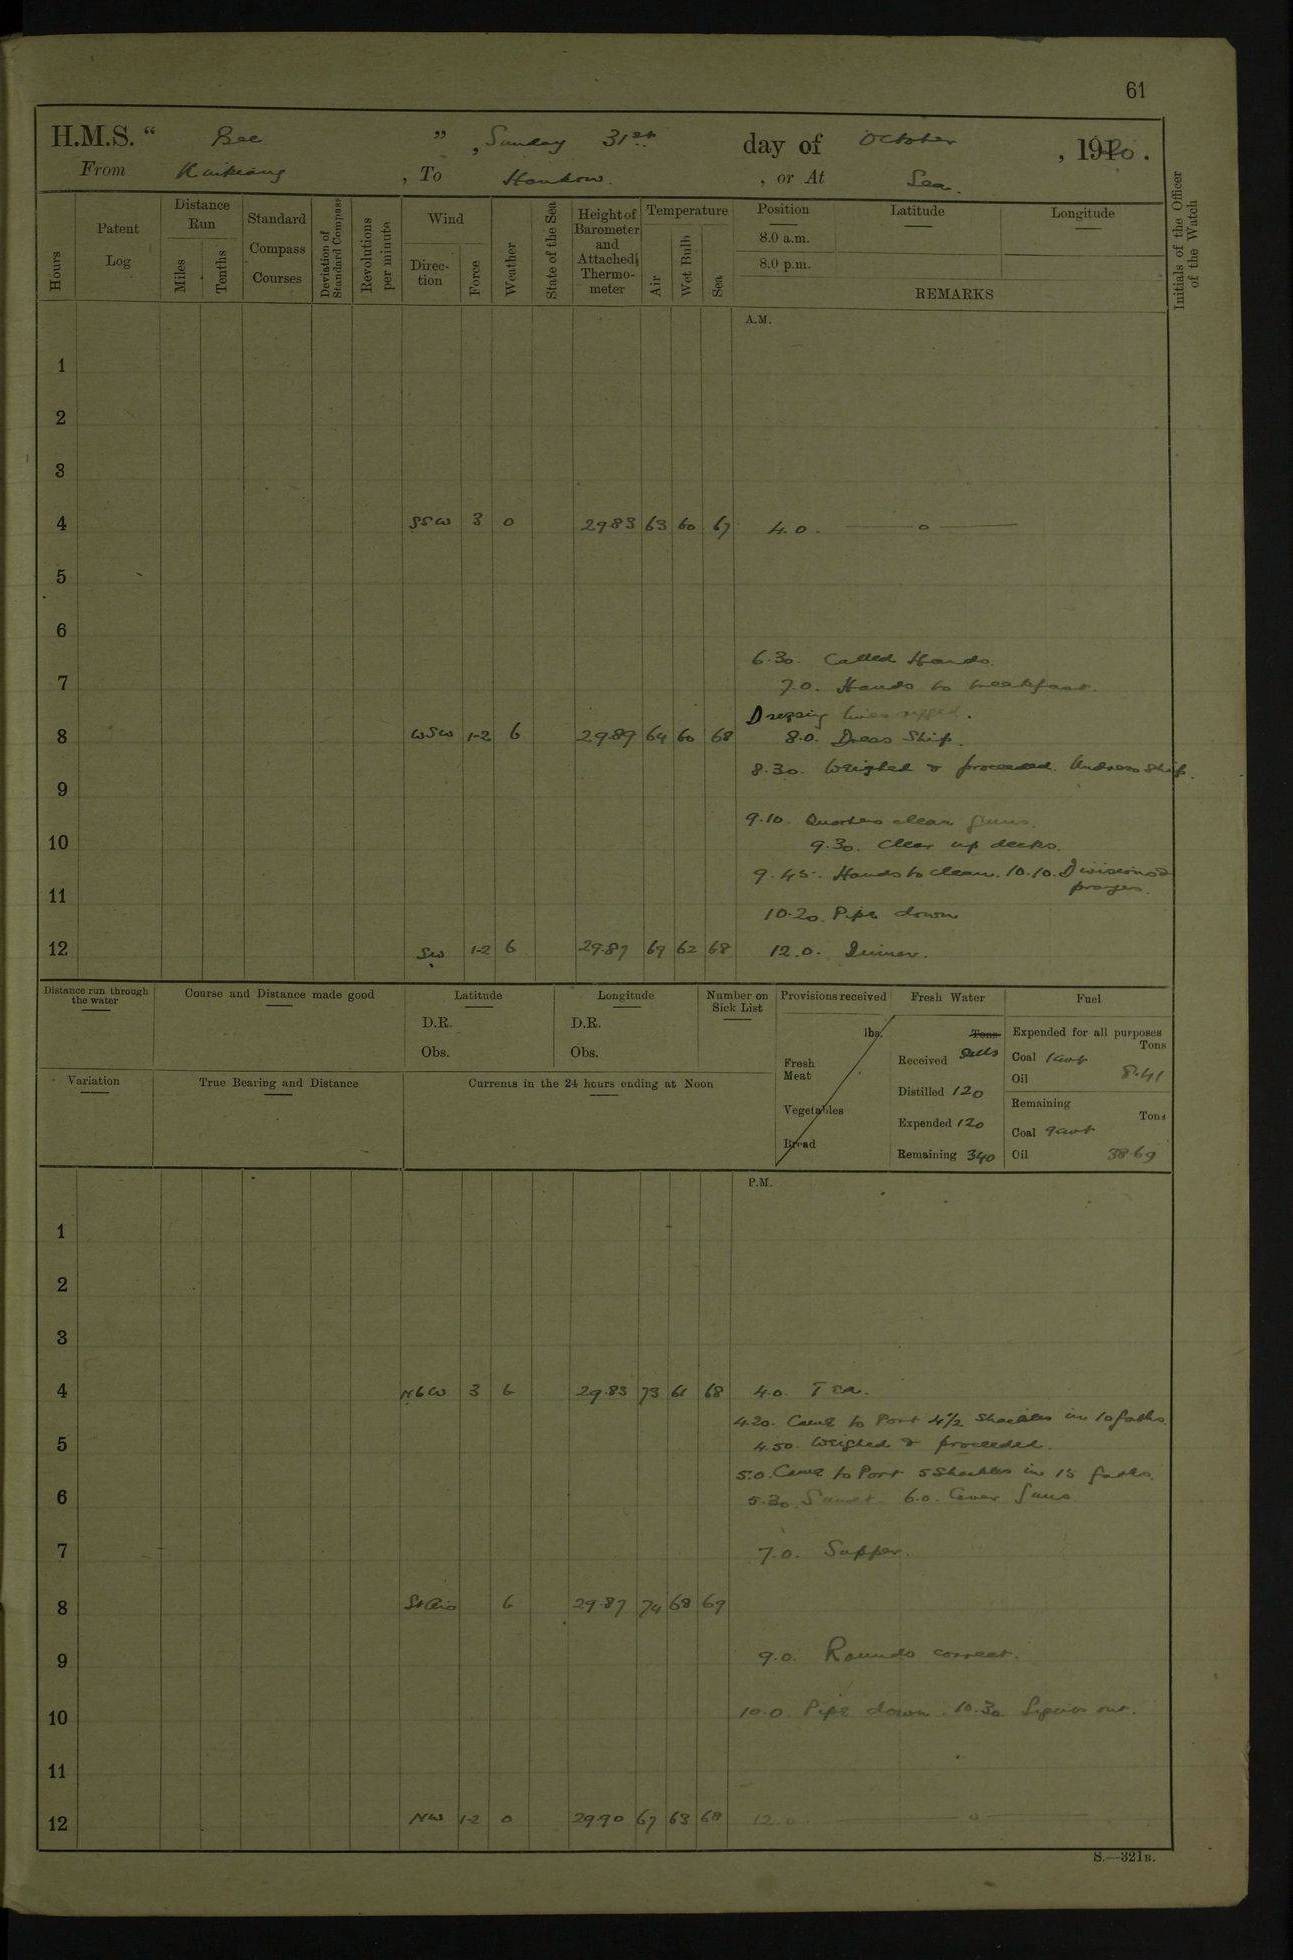 61
H.M.S. “ Bee ”, Sunday 31st day of October, 1920.
From Kiukiang, To Hankow, or At Sea.
Hours
Patent Log
Distance Run
Miles
Tenths
Standard Compass Courses
Deviation of Standard Compass
Revolutions per minute
Wind
Direction
Force
Weather
State of the Sea
Height of Barometer and Attached Thermometer
Temperature
Air
Wet Bulb
Sea
Position
8.0 a.m.
8.0 p.m.
Latitude
Longitude
REMARKS
Initials of the Officer of the Watch
A.M.
1
2
3
4 SSW 3 o 29.83 63 60 67 4.0. —— o ——
5
6
6.30. Called Hands.
7 7.0. Hands to breakfast.
Dressing lines rigged.
8 WSW 1-2 b 29.89 64 60 68 8.0. Dress Ship.
8.30. Weighed & proceeded. Undress Ship.
9
9.10. Quarters clean guns.
10 9.30. Clear up decks.
9.45. Hands to clean. 10.10. Divisions & prayers.
11
10.20. Pipe down
12 SW 1-2 b 29.87 69 62 68 12.0. Dinner.
Distance run through the water
Course and Distance made good
Latitude
D.R.
Obs.
Longitude
D.R.
Obs.
Number on Sick List
Provisions received
lbs.
Fresh Meat
Vegetables
Bread
Fresh Water
Tons
Received galls
Distilled 120
Expended 120
Remaining 340
Fuel
Expended for all purposes
Tons
Coal 1cwt
Oil 8.41
Remaining
Tons
Coal 9cwt
Oil 38.69
Variation
True Bearing and Distance
Currents in the 24 hours ending at Noon
P.M.
1
2
3
4 NbW 3 b 29.83 73 61 68 4.0. Tea.
4.20. Came to Port 4½ Shackles in 10 faths.
5 4.50. Weighed & proceeded.
5.0. Came to Port 5 Shackles in 15 faths.
6 5.30. Sunset. 6.0. Cover Guns
7 7.0. Supper.
8 b 29.87 74 68 69
9 9.0. Rounds correct.
10 10.0 Pipe down. 10.30 out.
11
12 NW 1-2 o 29.90 67 63 68 12.0. —— o ——
S.—321B.